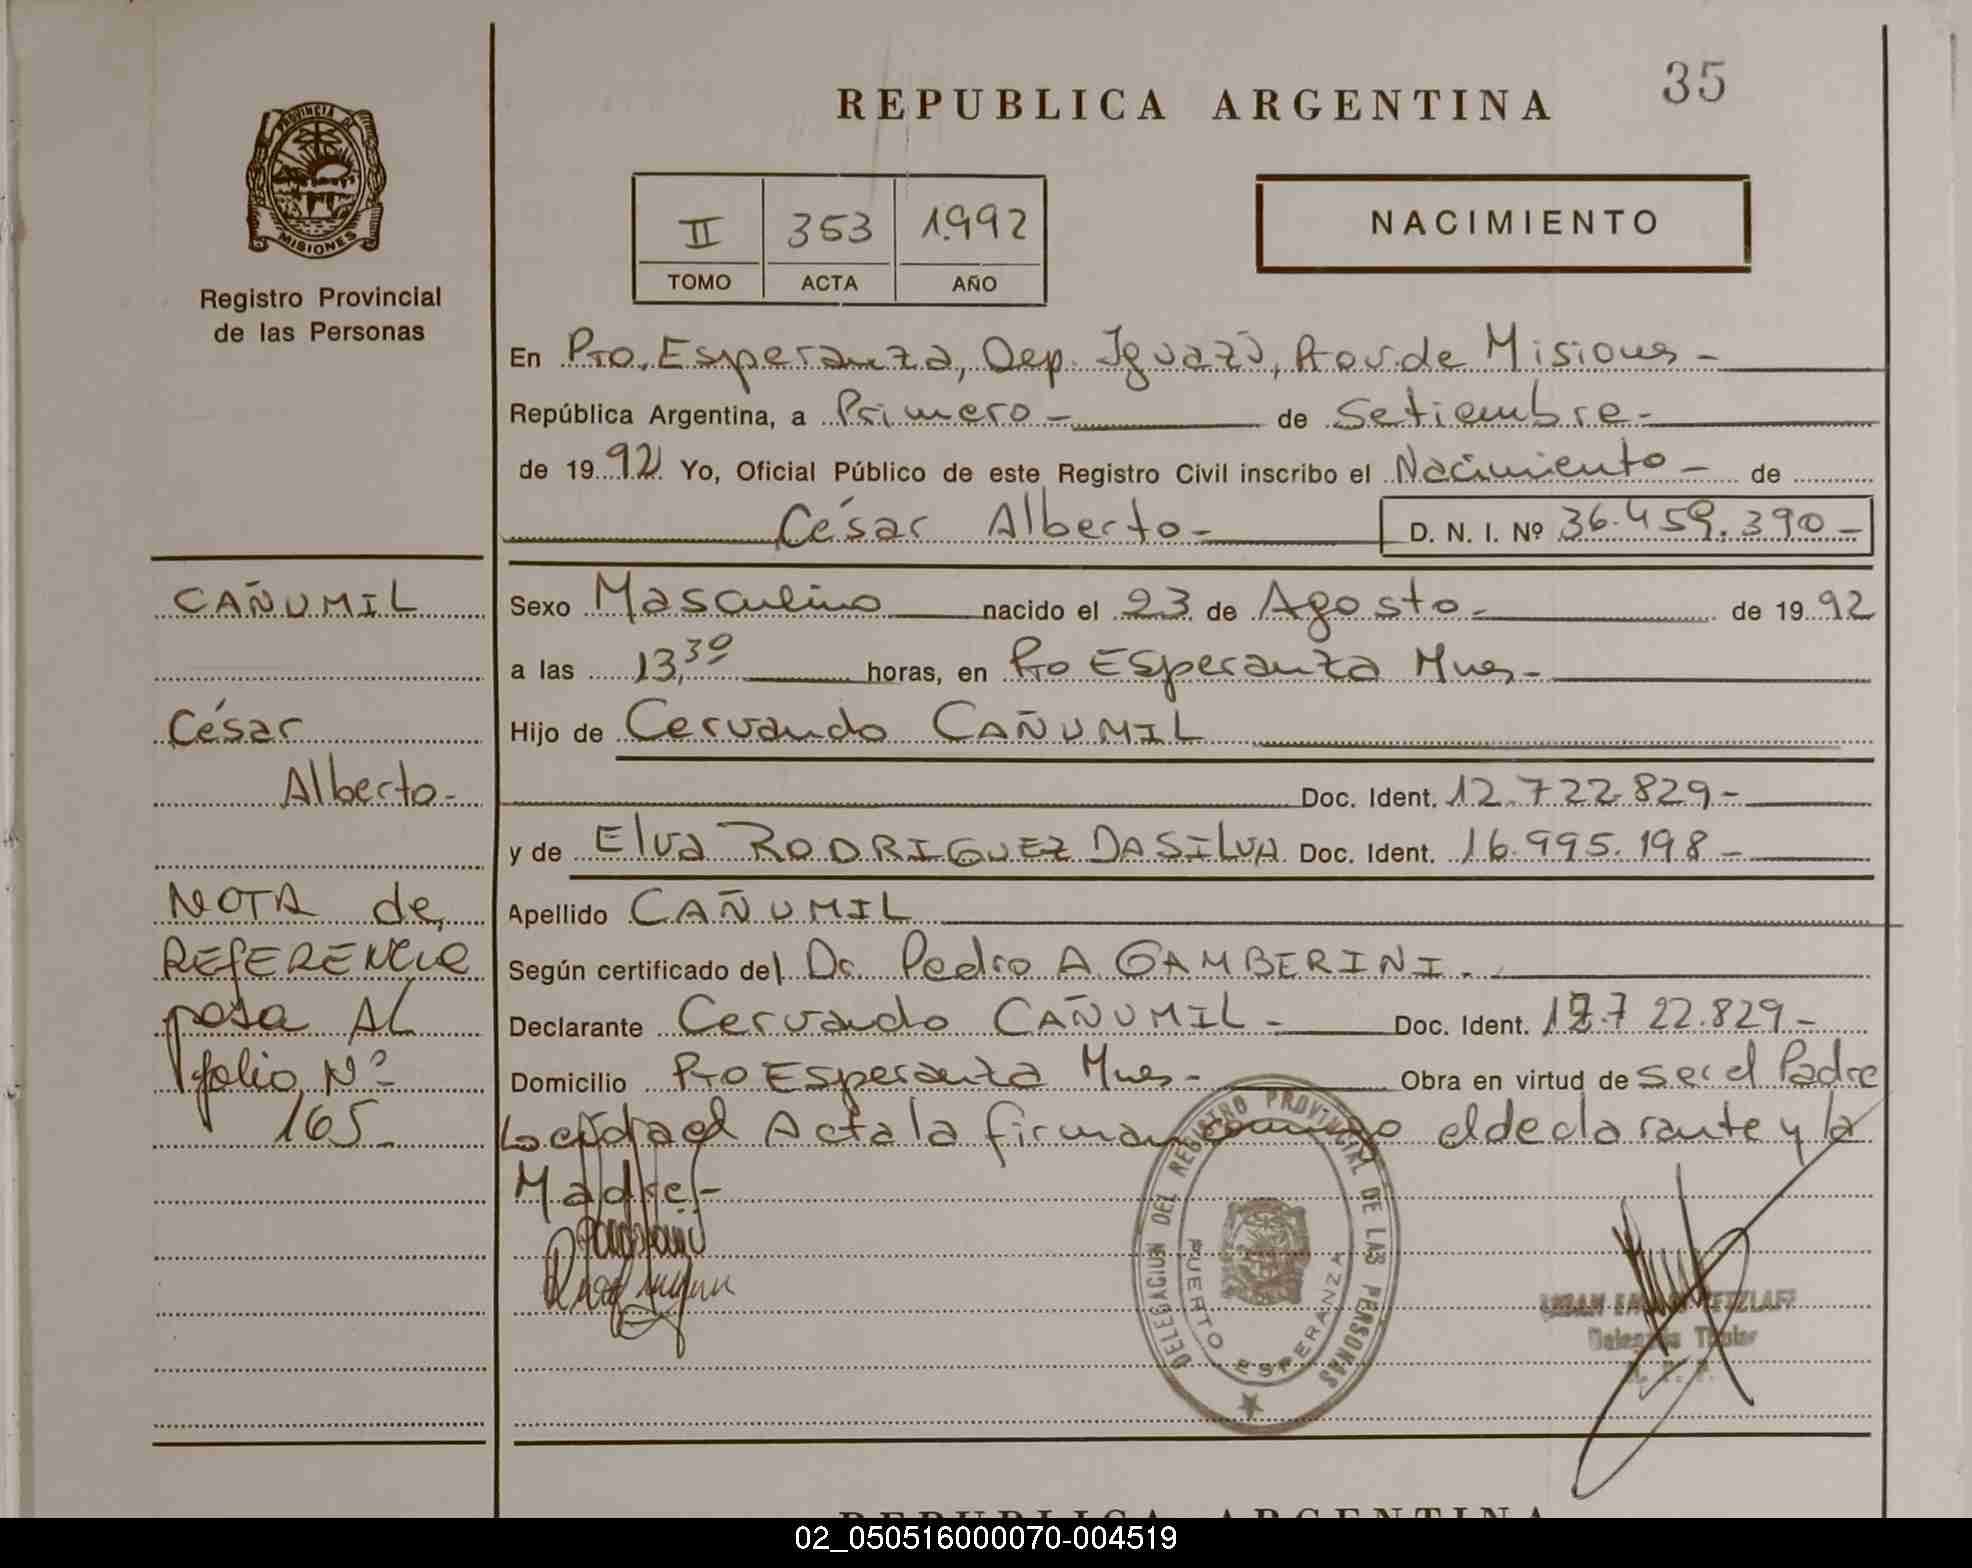 35
REPUBLICA ARGENTINA
PROVINCIA DE
MISIONES
Registro Provincial
de las Personas
II 353 1.992
TOMO ACTA AÑO
NACIMIENTO
En Pto. Esperanza, Dep. Iguazú, Prov. de Misiones -
República Argentina, a Primero - de Setiembre -
de 1992 Yo, Oficial Público de este Registro Civil inscribo el Nacimiento - de
César Alberto - D. N. I. Nº 36.459.390 -
Sexo Masculino nacido el 23 de Agosto - de 1992
a las 13,30 horas, en Pto Esperanza Mnes -
Hijo de Cervando CAÑUMIL
Doc. Ident. 12.722.829 -
y de Elva RODRIGUEZ DASILVA Doc. Ident. 16.995.198 -
Apellido CAÑUMIL
Según certificado del Dr. Pedro A GAMBERINI.
Declarante Cervando CAÑUMIL - Doc. Ident. 12.722.829 -
Domicilio Pto Esperanza Mnes - Obra en virtud de ser el Padre
Leída el Acta la firman conmigo el declarante y la
Madre -
CAÑUMIL
César
Alberto -
NOTA de
REFERENCIA
pasa AL
folio Nº
165 -
DELEGACION DEL REGISTRO PROVINCIAL DE LAS PERSONAS
PUERTO ESPERANZA
Delegado Titular
REPUBLICA ARGENTINA
02_050516000070-004519